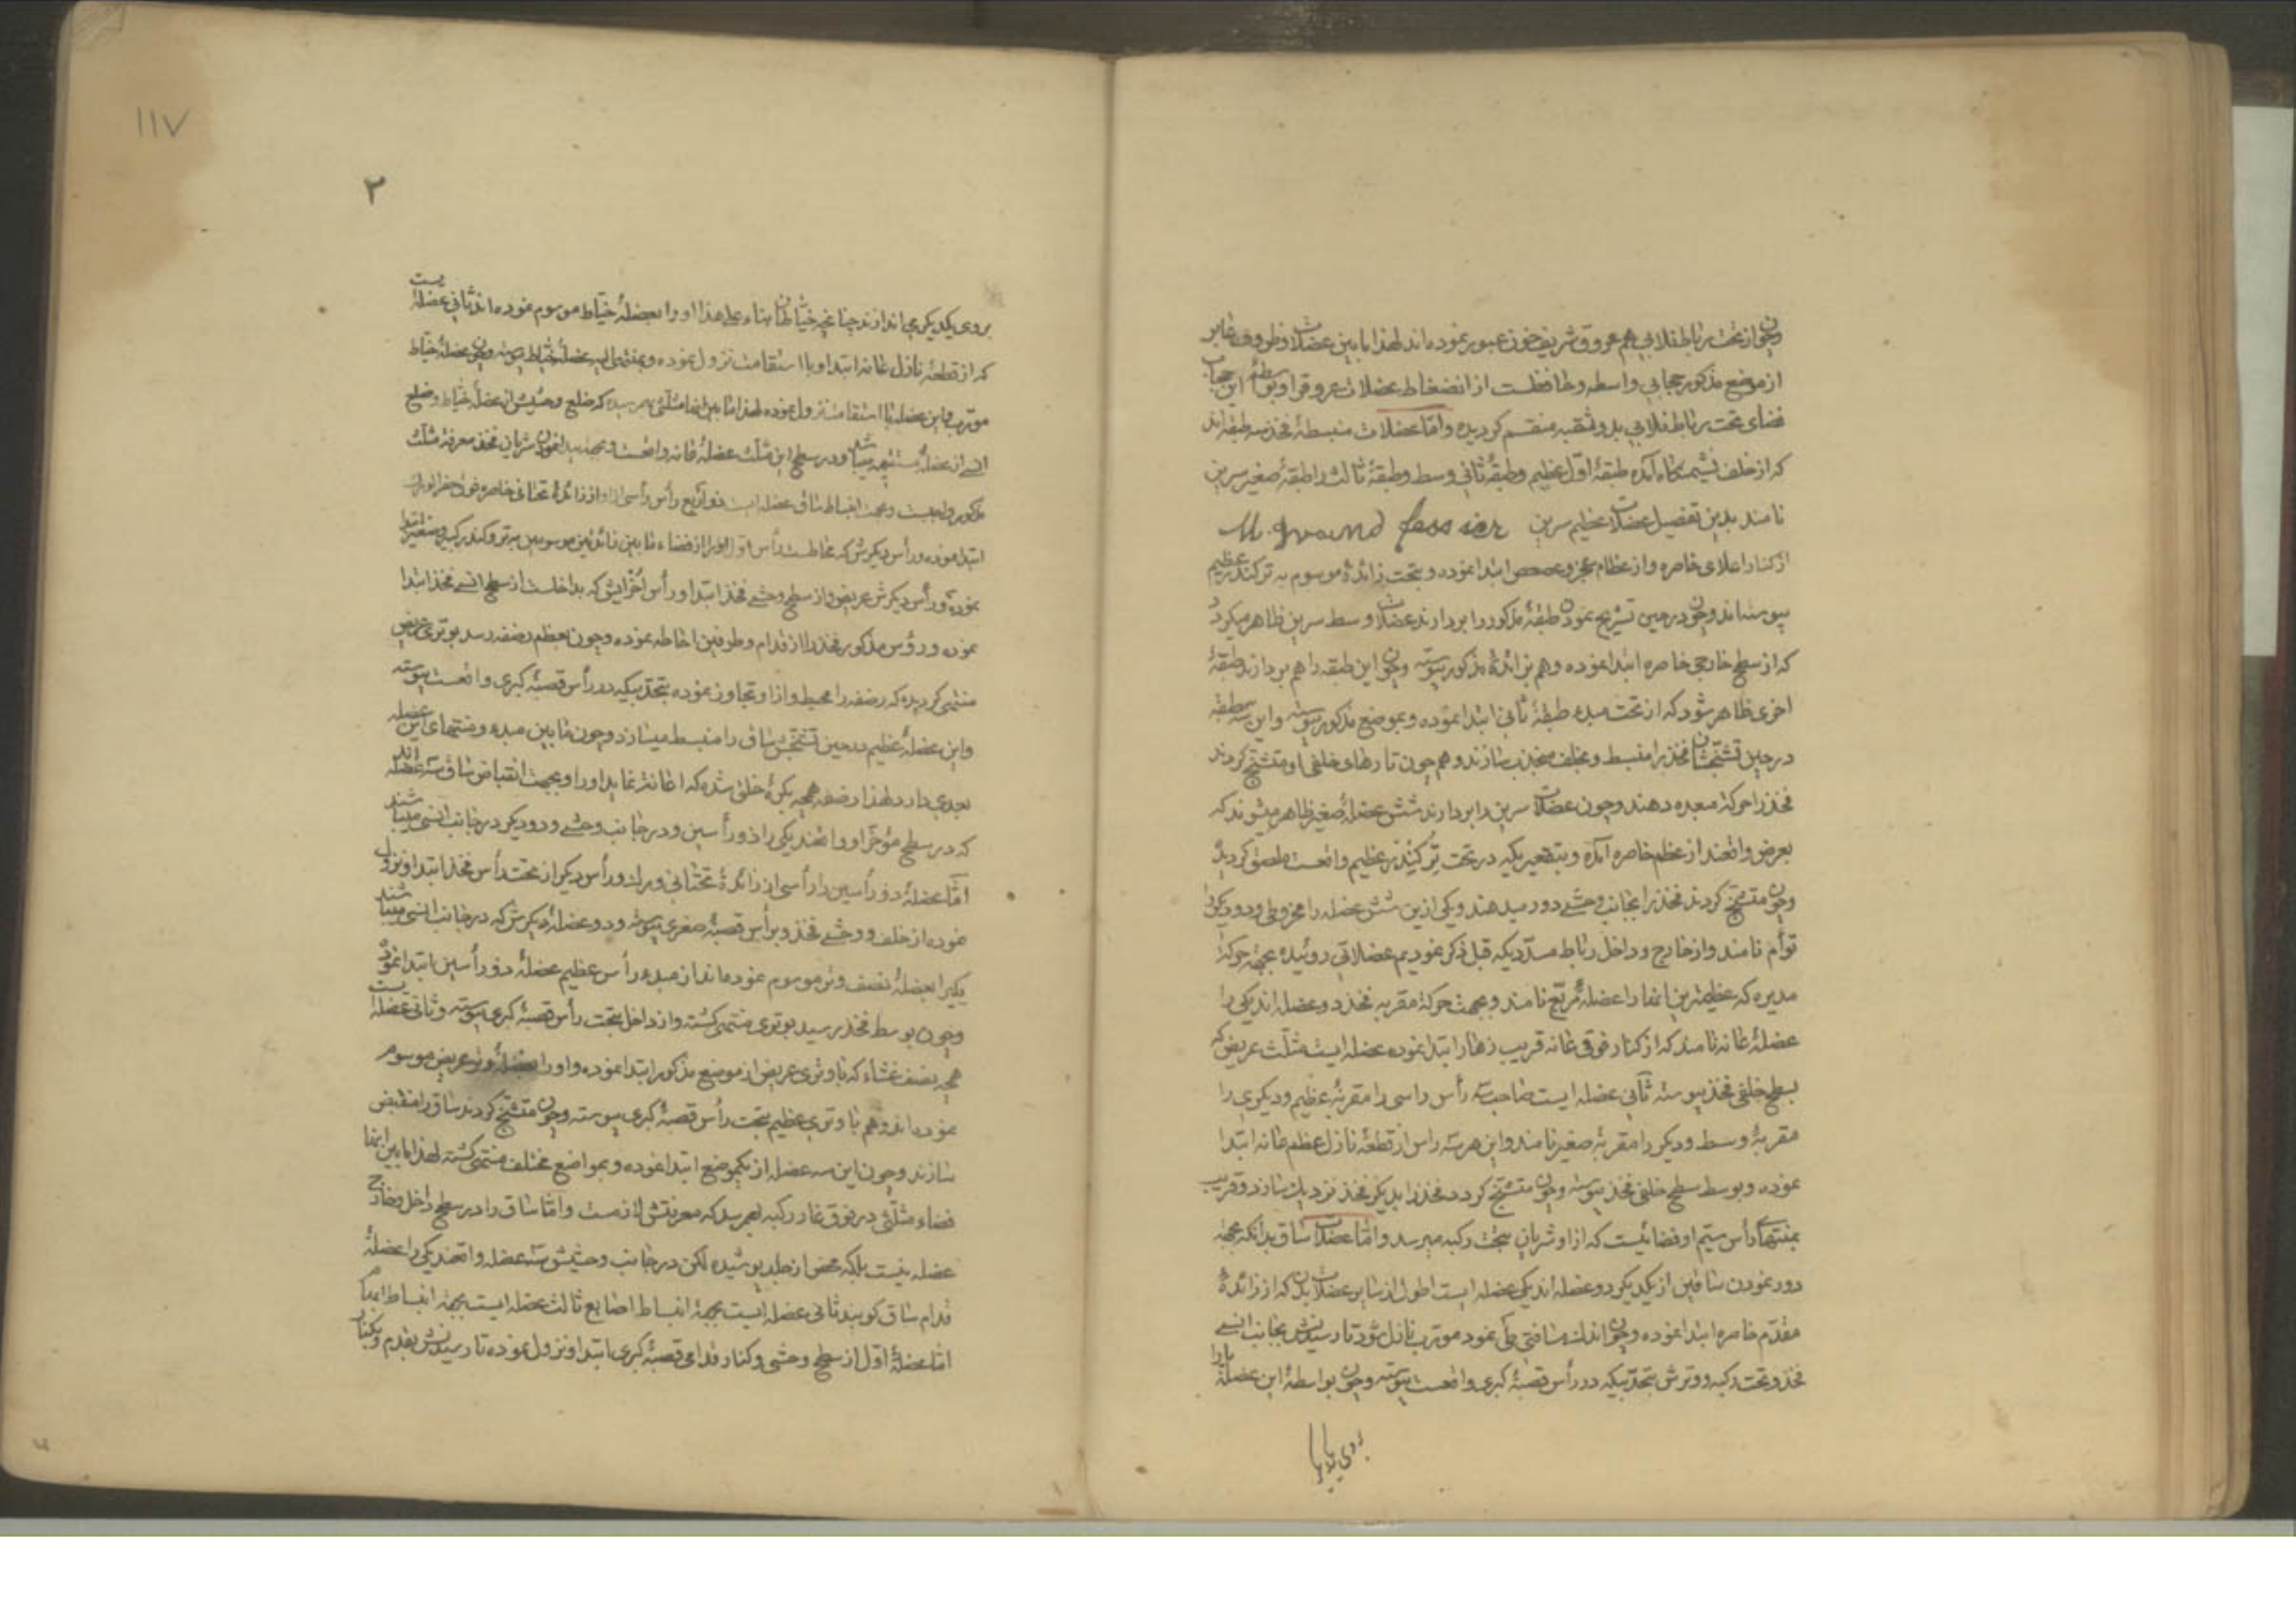 وچون از تحت رباط فلابی هم عروق شریف خون عبور نموده‌اند لهذا مابین عضلات و ظروف عابر
از موضع مذکور حجابی واسطه و حافظست از انضغاط عضلات عروق را و بواسطهٔ این حجاب
فضای تحت رباط فلابی بدو ثقبه منقسم کردیده و اما عضلات منبسطهٔ فخذ سه طبقه‌اند
که از خلف نشیمنکاه آمده طبقهٔ اول عظیم و طبقهٔ ثانی وسط و طبقهٔ ثالث را طبقهٔ صغیر سرین
نامند بدین تفصیل عضلات عظیم سرین M. grand fessier
از کنار اعلای خاصره و از عظام عجز و عصعص ابتدا نموده و بتحت زائدهٔ موسوم به ترکندر عظیم
پیوسته‌اند و چون در حین تشریح نمودن طبقهٔ مذکور را بردارند عضلات وسط سرین ظاهر میکردد
که از سطح خارجی خاصره ابتدا نموده و هم بزائدهٔ مذکور پیوسته وچون این طبقه را هم بردارند طبقهٔ
اخری ظاهر شود که از تحت مبدء طبقهٔ ثانی ابتدا نموده و بموضع مذکور پیوسته و این سه طبقه
در حین تشنجشان فخذ را منبسط و بخلف منجذب سازند و هم چون تارهای خلفی او متشنج کردند
فخذ را حرکة مبعده دهند وچون عضلات سرین را بردارند شش عضلهٔ صغیر ظاهر میشوند که
بعرض واقعند از عظم خاصره آمده و بتقعیریکه در تحت ترکیندر عظیم واقعست ملصق کردیده
وچون متشنج کردند فخذ را بجانب وحشی دور میدهند و یکی ازین شش عضله را مخروطی و دو دیکر را
توأم نامند و از خارج و داخل رباط مسدّدیکه قبل ذکر نمودیم عضلاتی روئیده بجهة حرکة
مدیره که عظیمترین آنها را عضلهٔ مربّع نامند و بجهت حرکة مقربه فخذ دو عضله‌اند یکی را
عضلهٔ عانه نامند که از کنار فوقی عانه قریب زهار ابتدا نموده عضله ایست مثلّث عریض که
بسطح خلفی فخذ پیوسته ثانی عضله ایست صاحب سه رأس راسی را مقربهٔ عظیم و دیکری را
مقربهٔ وسط و دیکر را مقربهٔ صغیر نامند و این هر سه راس از قطعهٔ نازل عظم عانه ابتدا
نموده و بوسط سطح خلفی فخذ پیوسته وچون متشنج کردد فخذ را بدیکر فخذ نزدیک سازد و قریب
بمنتهای رأس سیّم او فضائیست که از او شریان بتحت رکبه میرسد و اما عضلات ساق بدانکه بجهة
دور نمودن ساقین از یکدیکر دو عضله‌اند یکی عضله ایست اطول از سایر عضلات بدن که از زائدهٔ
مقدّم خاصره ابتدا نموده وچون اندک مسافتی طی نمود مورّب نازل شود تا رسیدنش بجانب انسی
فخذ و تحت رکبه و وترش بتحدّبیکه در رأس قصبهٔ کبری واقعست پیوسته وچون بواسطهٔ این عضله پا را
١١٧
٢
بروی یکدیکر می‌اندازند چنانچه خیّاطان بناء علی هذا او را بعضلهٔ خیّاط موسوم نموده‌اند ثانی عضله ایست
که از قطعهٔ نازل عانه ابتدا و با استقامت نزول نموده و بمنتهای عضلهٔ خیّاط پیوسته وچون عضلهٔ خیّاط
مورّب و این عضله با استقامت نزول نموده لهذا مابین آنها مثلثی بهم رسیده که ضلع وحشیش از عضلهٔ خیّاط و ضلع
انسی از عضلهٔ مستقیمه میباشد و در سطح این مثلّث عضلهٔ عانه واقعست و شریان فخذ معرفة مثلّث
مذکور واجبست و بجهت انبساط ساق عضله ایست ذو اربع رأس رأسی از او از زائدهٔ تحتانی خاصره
ابتدا نموده و رأس دیکرش که
نموده و رأس دیکرش عریض و از سطح وحشی فخذ ابتدا و رأس آخرینش که بداخلست از سطح انسی فخذ ابتدا
نموده و رؤس مذکور فخذ را از قدام و طرفین احاطه نموده وچون بعظم رضفه رسد بوتری عریض
منتهی کردیده که رضفه را محیط و از او تجاوز نموده بتحدّبیکه در رأس قصبهٔ کبری واقعست پیوسته
و این عضلهٔ عظیم در حین تشنجش ساق را منبسط میسازد وچون مابین مبدء و منتهای این عضله
بعدی دارد لهذا رضفه هم‌چه بکرهٔ خلق شده که اعانة نماید او را و بجهت انقباض ساق سه عضله‌اند
که در سطح مؤخّر او واقعند یکی را ذو رأسین و در جانب وحشی و دو دیکر در جانب انسی میباشند
امّا عضلهٔ ذو رأسین را رأسی از زائدهٔ تحتانی ورک و رأس دیکر از تحت رأس فخذ ابتدا و نزول
نموده از خلف و وحشی فخذ و برأس قصبهٔ صغری پیوسته و دو عضلهٔ دیکرش که در جانب انسی میباشند
یکیرا بعضلهٔ نصف وتر موسوم نموده‌اند از مبدء رأس عظیم عضلهٔ ذو رأسین ابتدا نموده
وچون بوسط فخذ رسید بوتری منتهی کشته و از داخل بتحت رأس قصبهٔ کبری پیوسته و ثانی عضله ایست
هم‌چه نصف غشاء که با وتری عریض از موضع مذکور ابتدا نموده و او را بعضلهٔ وتر عریض موسوم
نموده‌اند و هم با وتری عظیم بتحت رأس قصبهٔ کبری پیوسته وچون متشنج کردند ساق را منقبض
سازند وچون این سه عضله از یکموضع ابتدا نموده و بمواضع مختلف منتهی کشته لهذا مابین آنها
فضاء مثلّثی در فوق غار رکبه بهم رسد که معرفتش لازمست و امّا ساق را در سطح داخل و خارج
عضله نیست بلکه محض از جلد پوشیده لکن در جانب وحشیش سه عضله واقعند یکی را عضلهٔ
قدام ساق کویند ثانی عضله ایست بجهة انبساط اصابع ثالث عضله ایست بجهة انبساط ابهام
امّا عضلهٔ اوّل از سطح وحشی و کنار قدامی قصبهٔ کبری ابتدا و نزول نموده تا رسیدنش بقدم و بکنار